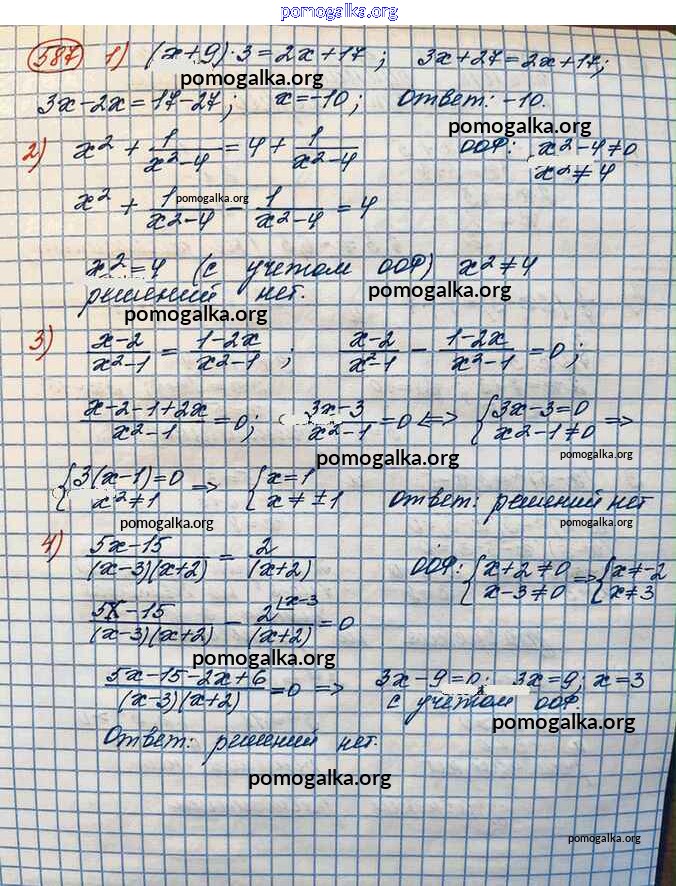 pomogalka.org
587 1) (x+9)·3=2x+17; 3x+27=2x+17;
pomogalka.org
3x-2x=17-27; x=-10; Ответ: -10.
pomogalka.org
2) x² + 1/(x²-4) = 4 + 1/(x²-4) ООФ: x²-4≠0
x²≠4
x² + 1/(x²-4) - 1/(x²-4) = 4
pomogalka.org
x²=4 (с учетом ООФ) x²≠4
решений нет. pomogalka.org
pomogalka.org
3) (x-2)/(x²-1) = (1-2x)/(x²-1); (x-2)/(x²-1) - (1-2x)/(x²-1) = 0;
(x-2-1+2x)/(x²-1) = 0; (3x-3)/(x²-1) = 0 <=> {3x-3=0 =>
x²-1≠0
pomogalka.org pomogalka.org
{3(x-1)=0 => {x=1
x²≠1 x≠±1 Ответ: решений нет
pomogalka.org pomogalka.org
4) (5x-15)/((x-3)(x+2)) = 2/(x+2) ООФ: {x+2≠0 => {x≠-2
x-3≠0 x≠3
pomogalka.org
(5x-15)/((x-3)(x+2)) - 2^(x-3)/(x+2) = 0
pomogalka.org
(5x-15-2x+6)/((x-3)(x+2)) = 0 => 3x-9=0; 3x=9; x=3
с учетом ООФ.
pomogalka.org
Ответ: решений нет.
pomogalka.org
pomogalka.org